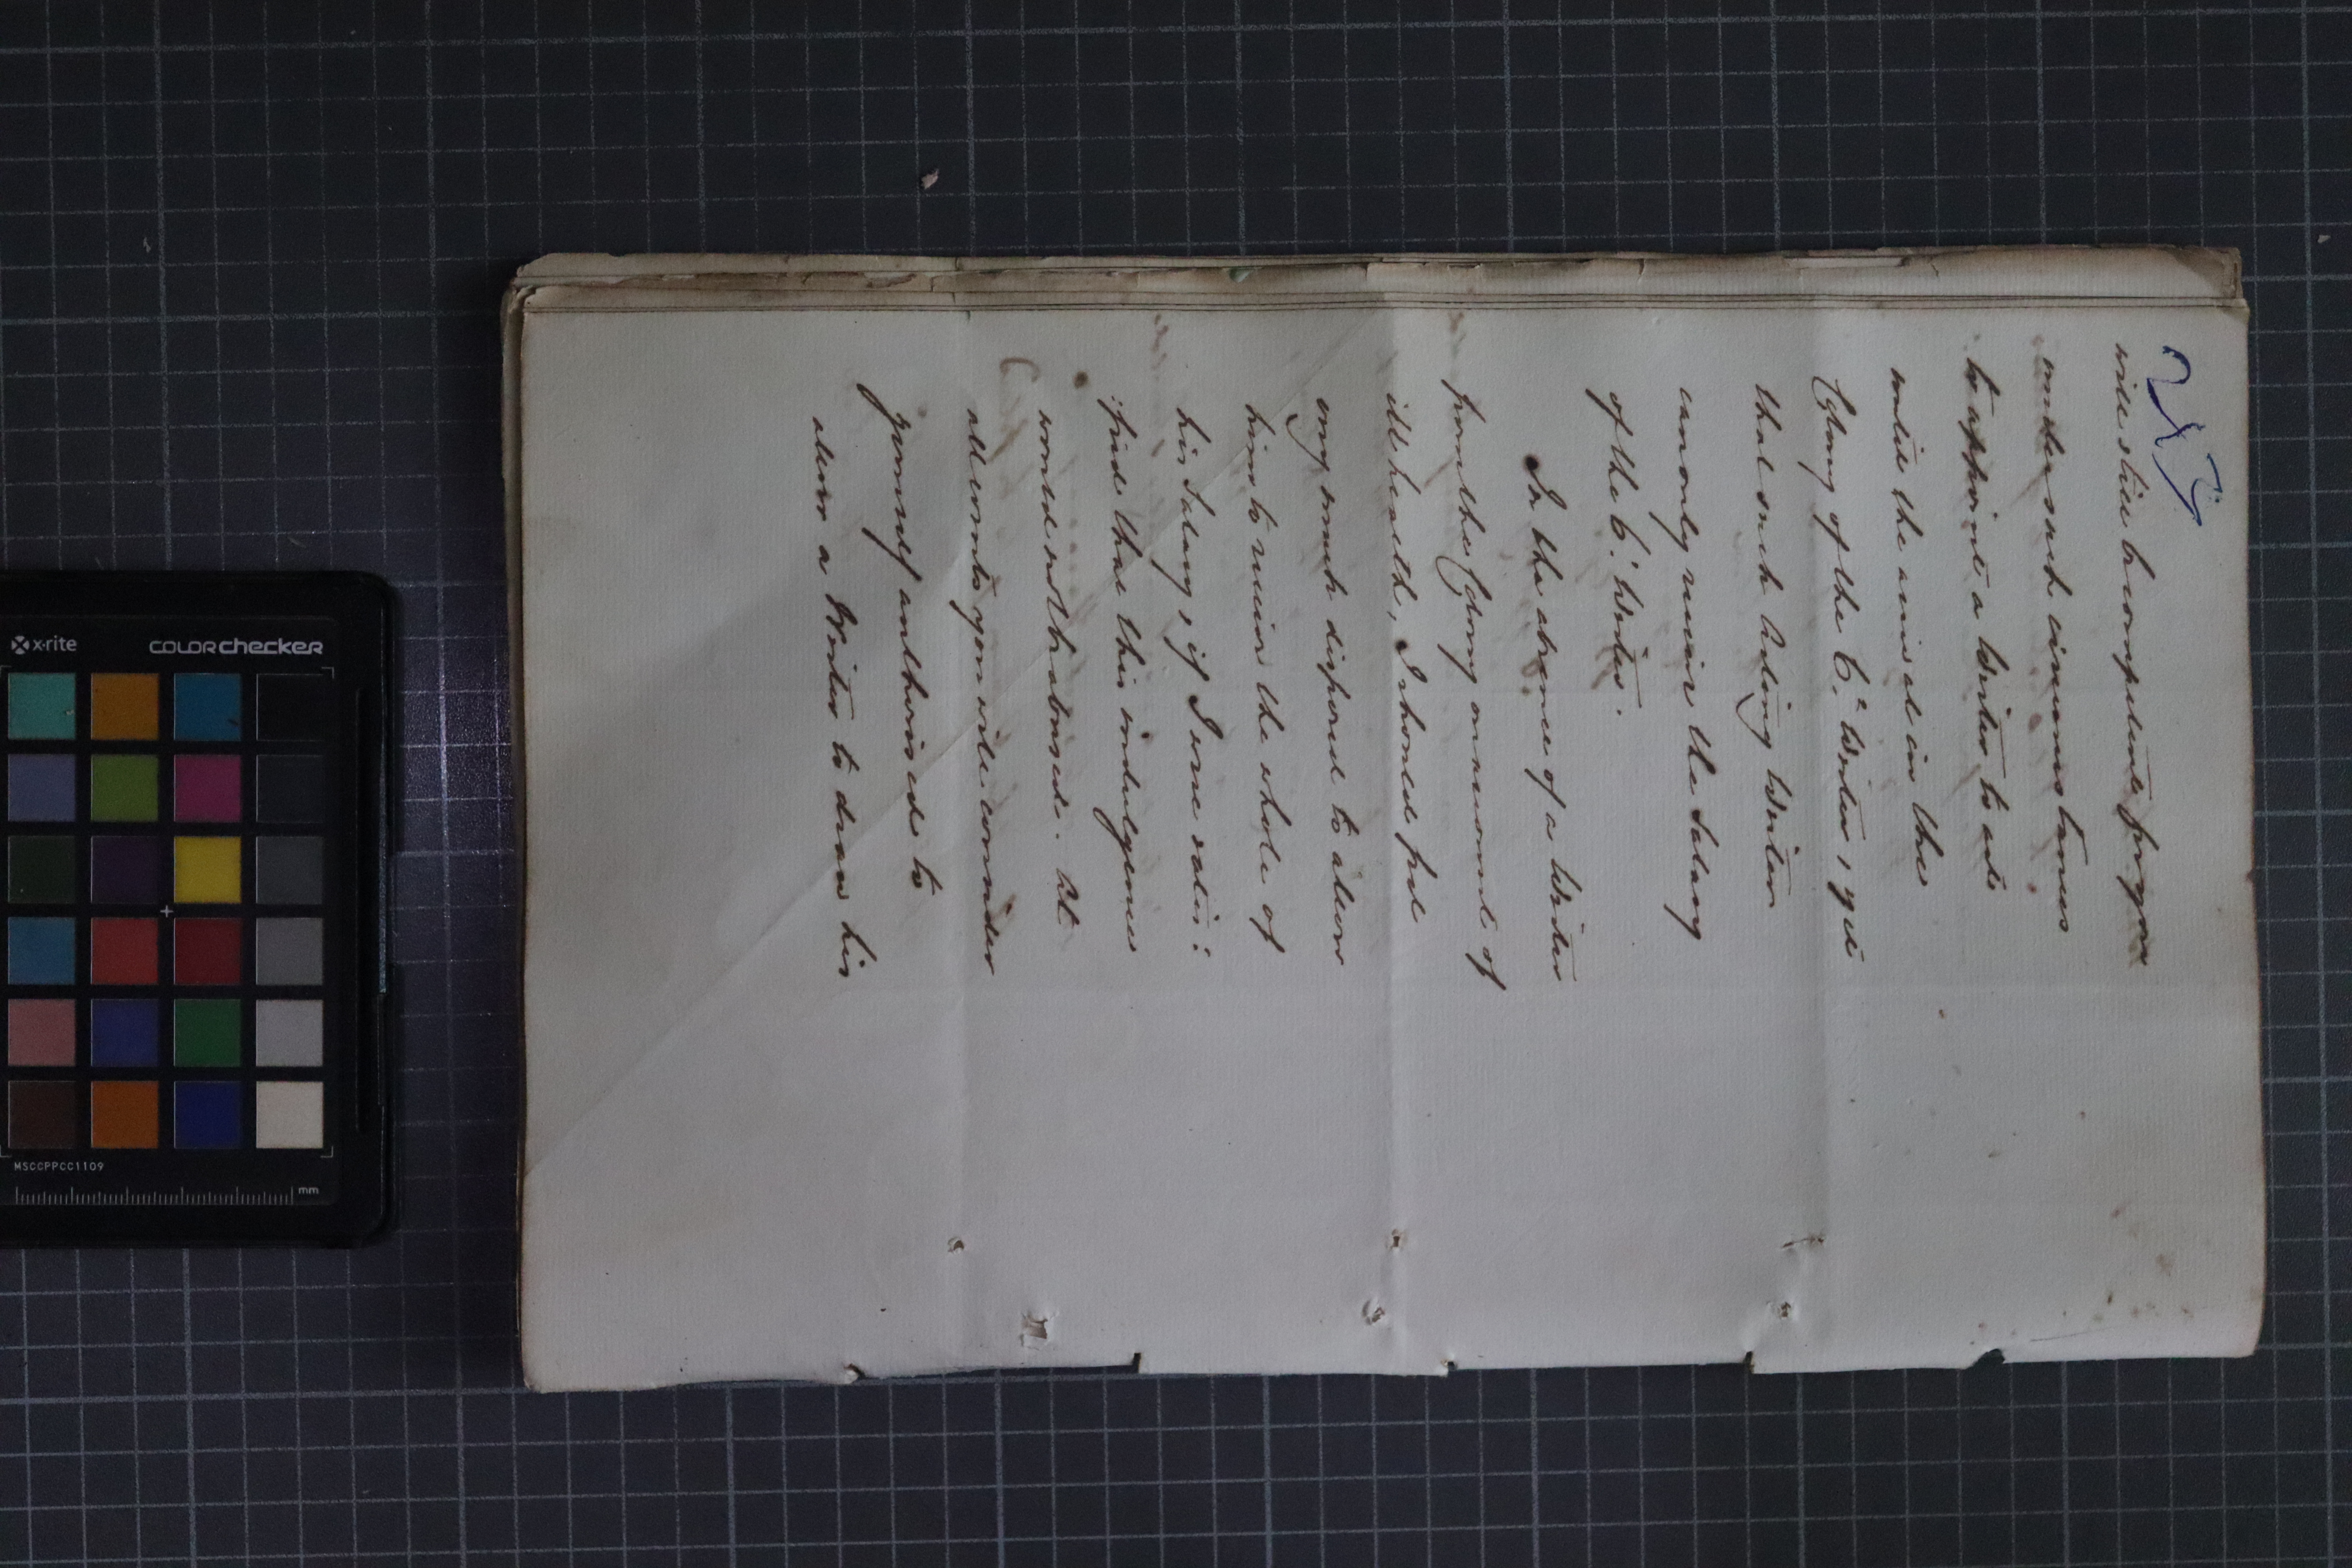 will still be competent for you
under such circumstances
to appoint a Writer to act
until the arrival in the
Colony of the C.º Writer, yet
that such Acting Writer
can only receive the Salary
of the C.º Writer.
In the absence of a Writer
from the Colony on account of
ill health, I should feel
very much disposed to allow
him to receive the whole of
his Salary, if I were satis:
:fied that this indulgence
would not be abused. At
all events you will consider
yourself authorised to
allow a Writer to draw his
x-rite
colorchecker
MSCCPPCC1109
mm